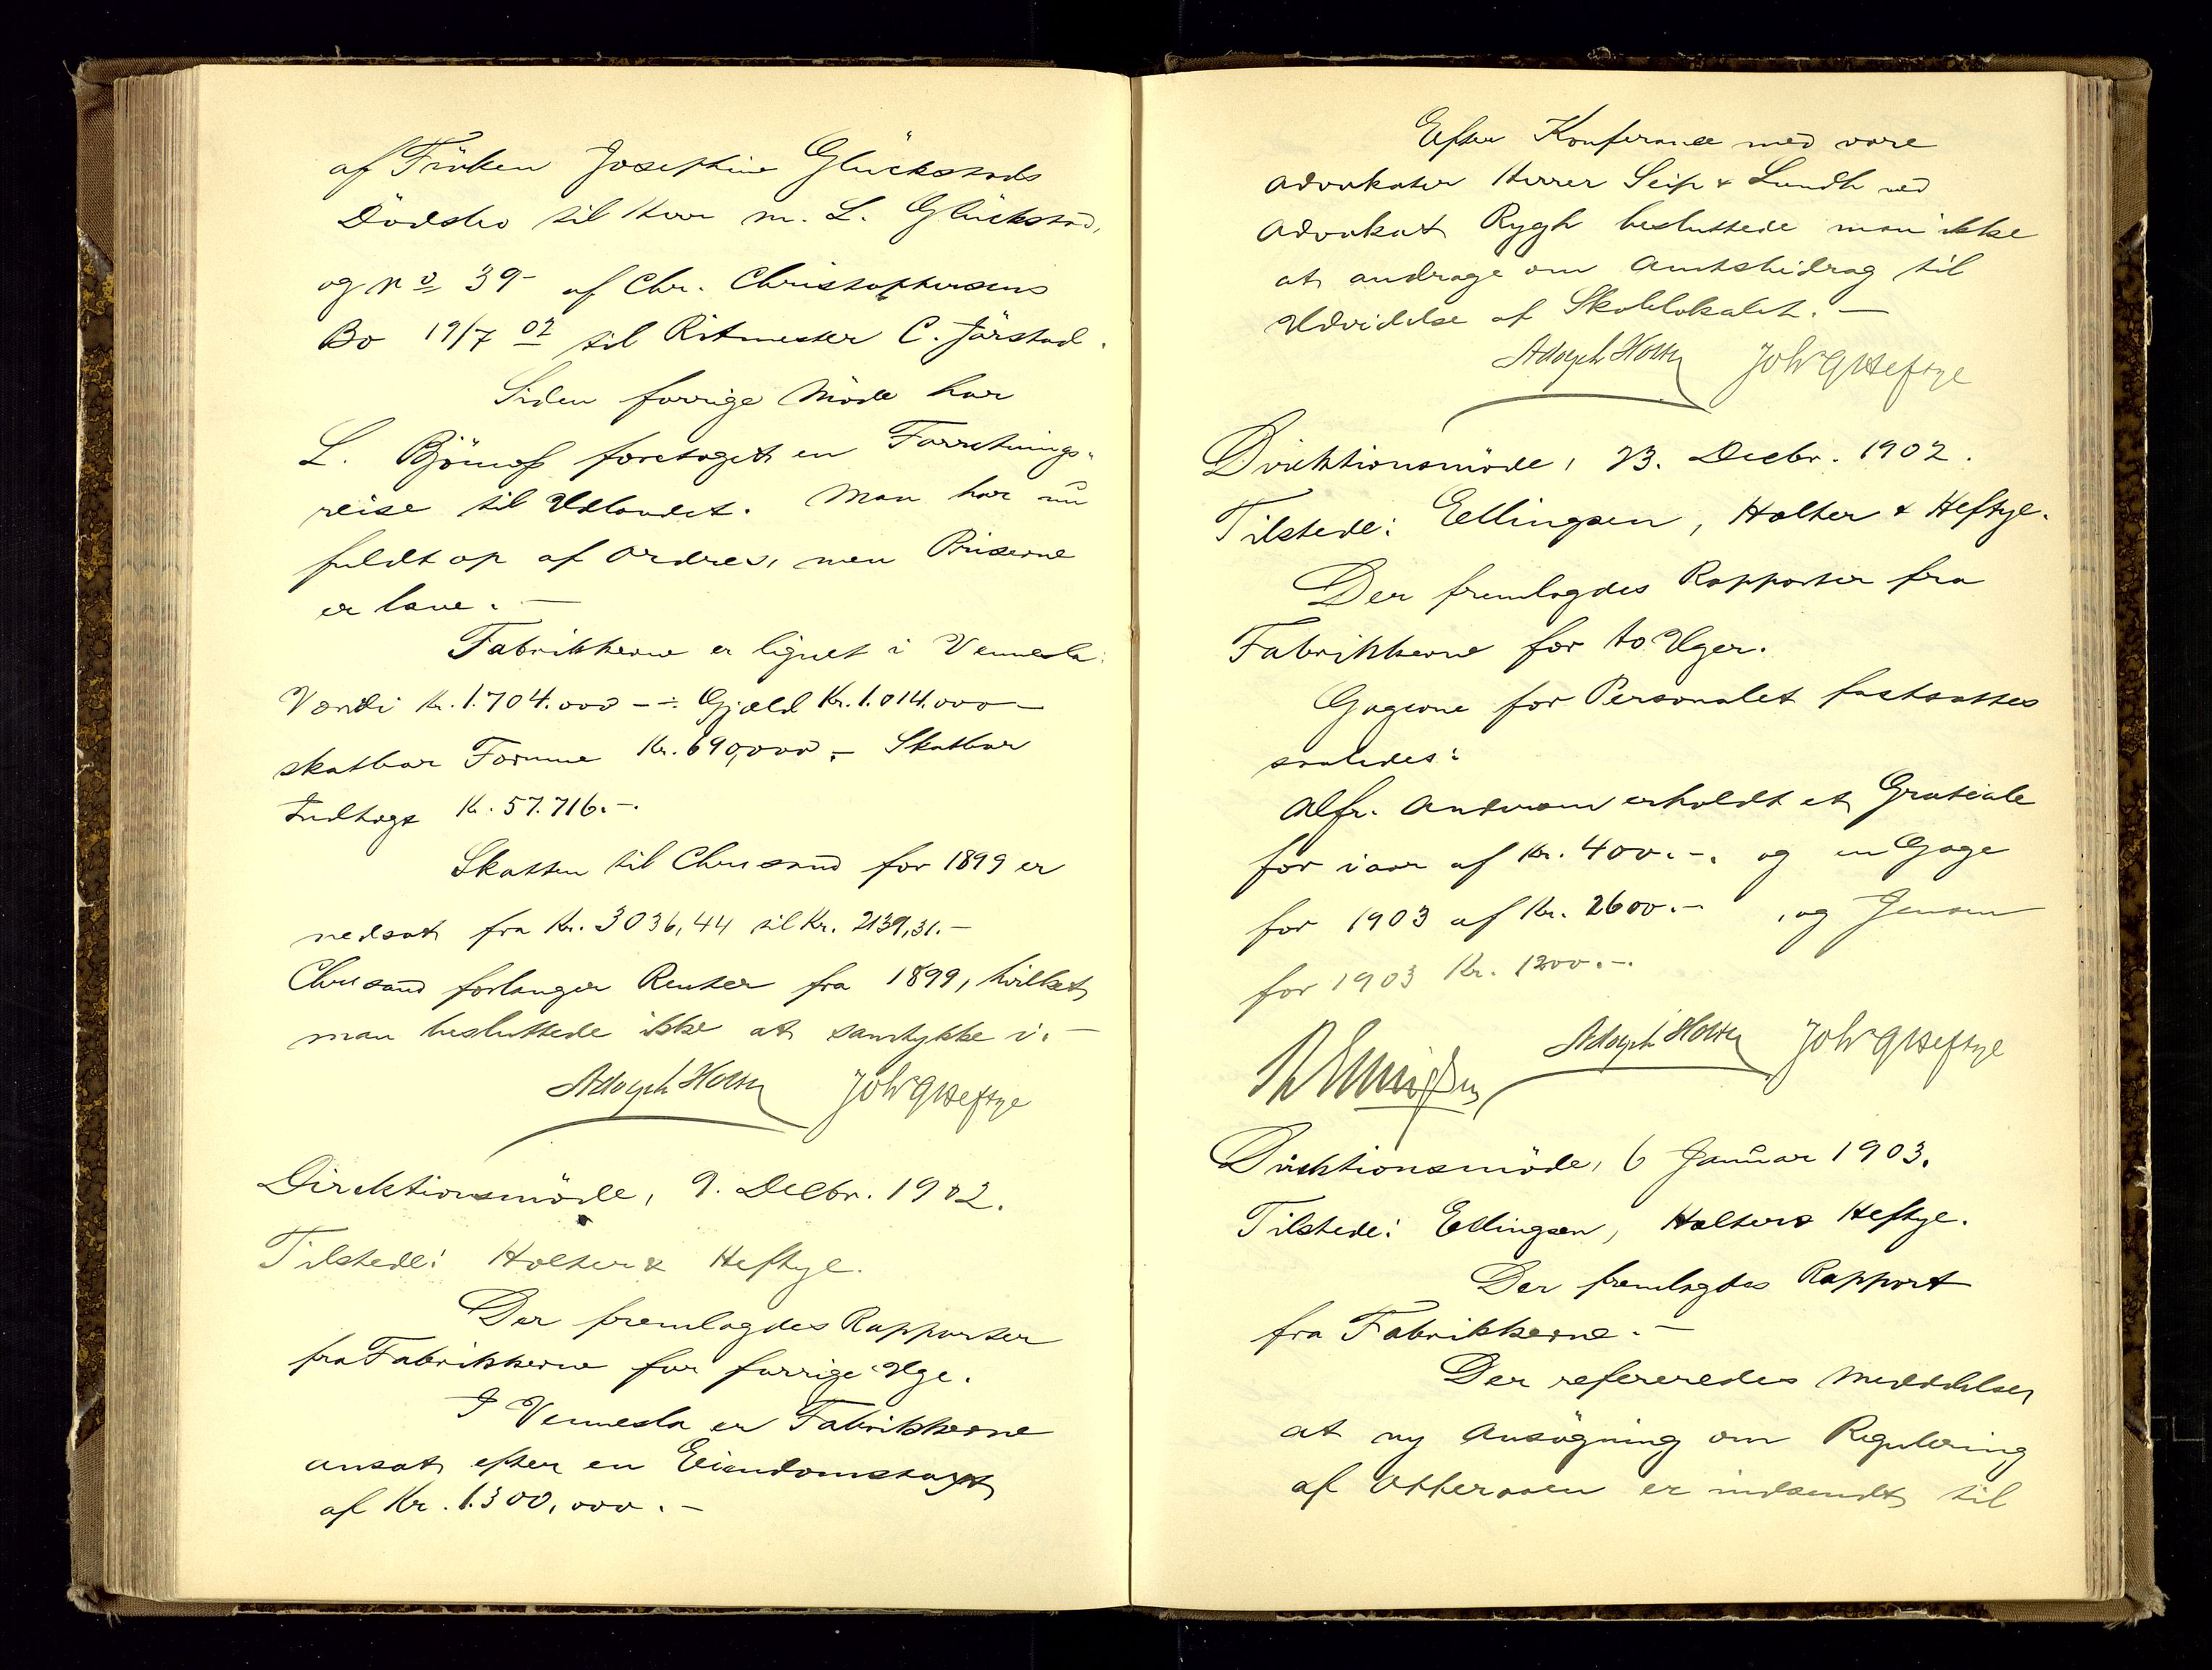 af Fröken Josephine Glückstads
Dödsbo til Herr M. L. Glückstad,
og No 39 af Chr. Christophersens
Bo 19/7 02 til Ritmester C. Jörstad.
Siden forrige Möde har
L. foretaget en Forretnings-
reise til Udlandet. Man har nu
fuldt op af Ordres, men Priserne
er lave. —
Fabrikkerne er lignet i Vennesla:
Værdi Kr. 1.704.000 - ÷ Gjæld Kr. 1.014.000 —
skatbar Formue Kr. 690,000. - Skatbar
Indtægt Kr. 57.716. -.
Skatten til Chrissand for 1899 er
nedsat fra Kr. 3036,44 til Kr. 2139,31. -
Chrissand forlanger Renter fra 1899, hvilket
man besluttede ikke at samtykke i. —
Adolph Holter Joh G Heftye
Direktionsmöde, 9. Decbr. 1902.
Tilstede: Holter & Heftye.
Der fremlagdes Rapporter
fra Fabrikkerne for forrige Uge.
I Vennesla er Fabrikkerne
ansat efter en Eiendomstaxt
af Kr. 1.300,000. -
Efter Konferance med vore
Advokater Herrer Seip & Lundh ved
Advokat Rygh besluttede man ikke
at andrage om Amtsbidrag til
Udvidelse af Skolelokalet. —
Adolph Holter Joh G Heftye
Direktionsmöde, 23. Decbr. 1902.
Tilstede: Ellingsen, Holter & Heftye.
Der fremlagdes Rapporter fra
Fabrikkerne for to Uger.
Gagerne for Personalet fastsattes
saaledes:
Alfr. Andersen erholdt et Gratiale
for iaar af Kr. 400. -. og en Gage
for 1903 af Kr. 2600. - , og Jensen
for 1903 Kr. 1200. -.
Ellingsen Adolph Holter Joh G Heftye
Direktionsmöde, 6 Januar 1903.
Tilstede: Ellingsen, Holter & Heftye.
Der fremlagdes Rapport
fra Fabrikkerne. —
Der refereredes Meddelelse,
at ny Ansögning om Regulering
af Otteraaen er indsendt til